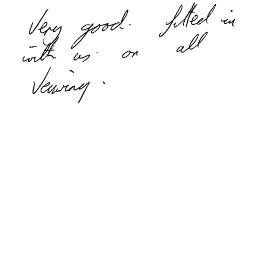 Very good. fitted in
with us on all
Veiwing.